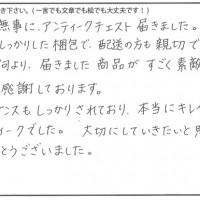 き下さい。(一言でも文章でも絵でも大丈夫です!)
無事に、アンティークチェスト届きました。
しっかりした梱包で、配送の方も親切で
何より、届きました商品がすごく素敵
感謝しております。
ンスもしっかりされており、本当にキレイ
ィークでした。大切にしていきたいと思
とうございました。